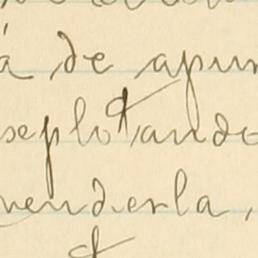 á de apun
seplotando
venderla,